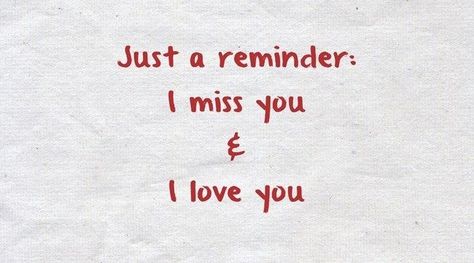 Just a reminder:
I miss you
&
I love you